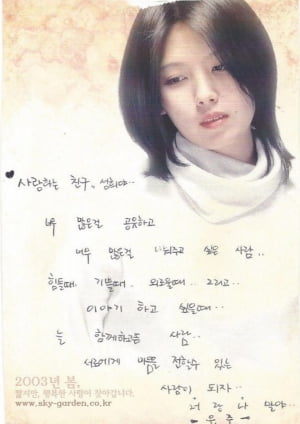 ♥ 사랑하는 친구. 성희야...
너무 많은걸 공유하고
너무 많은걸 나눠주고 싶은 사람..
힘들때. 기쁠때. 외로울때... 그리고...
이야기 하고 싶을때..
늘 함께하고픈 사람..
서로에게 마음을 전할수 있는
사람이 되자...
너랑 나 말야...
- 은주 -
2003년 봄,
짧지만, 행복한 사랑이 찾아갑니다.
www.sky-garden.co.kr